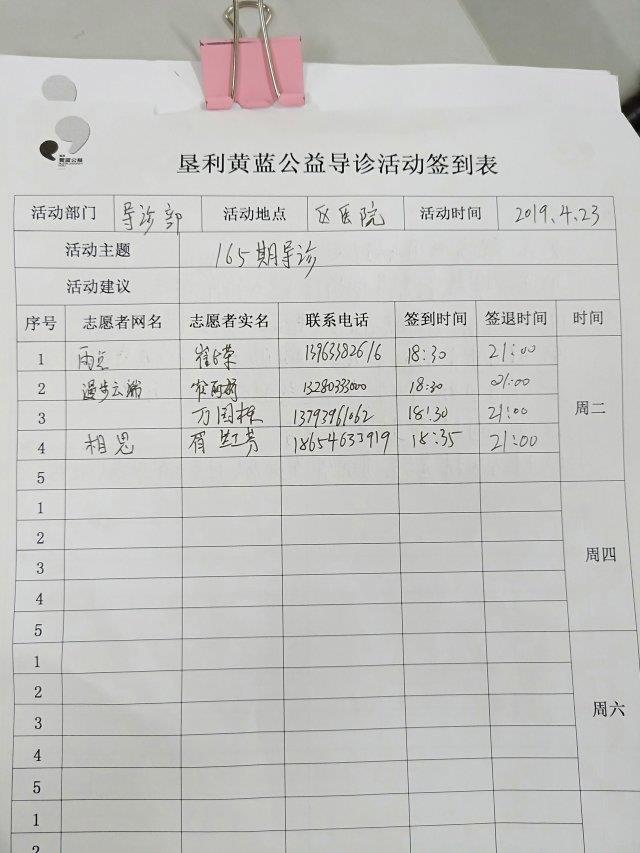 黄蓝公益
垦利黄蓝公益导诊活动签到表
活动部门 导诊部 活动地点 区医院 活动时间 2019.4.23
活动主题 165期导诊
活动建议
序号 志愿者网名 志愿者实名 联系电话 签到时间 签退时间 时间
1 雨点 13963382616 18:30 21:00
2 漫步云端 13280333000 18:30 21:00
3 万国栋 13793961062 18:30 21:00
周二
4 相思 18654633919 18:35 21:00
5
1
2
3
周四
4
5
1
2
周六
3
4
5
1
2